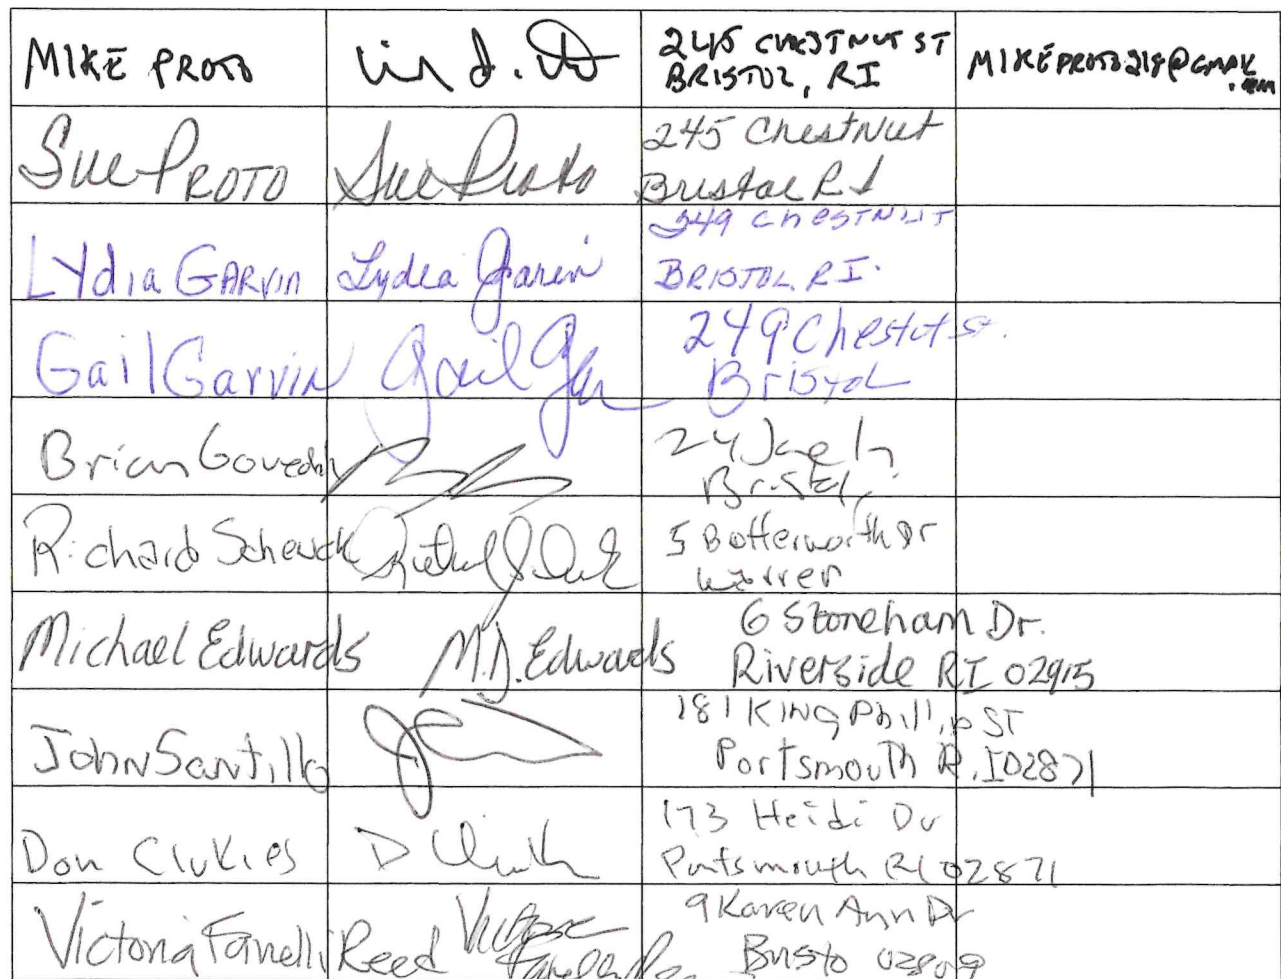 MIKE PROTO
245 CHESTNUT ST
BRISTOL, RI
MIKEPROTO218@GMAIL
.COM
Sue PROTO Sue Proto
245 ChestNut
Bristol RI
Lydia GARVIN Lydia Garvin
249 CHESTNUT
BRISTOL, RI.
Gail Garvin Gail
249 Chestut St.
Bristol
Brian
24
Bristol
Richard Schenck
5 Butterworth Dr
Warren
Michael Edwards M.D. Edwards
6 Stoneham Dr.
Riverside RI 02915
John Santillo
181 KING Phillip ST
Portsmouth R.I 02871
Don Clukies D
173 Heidi Dr
Portsmouth RI 02871
Victoria Fanelli Reed Victoria
9 Karen Ann Dr
Bristo 02809